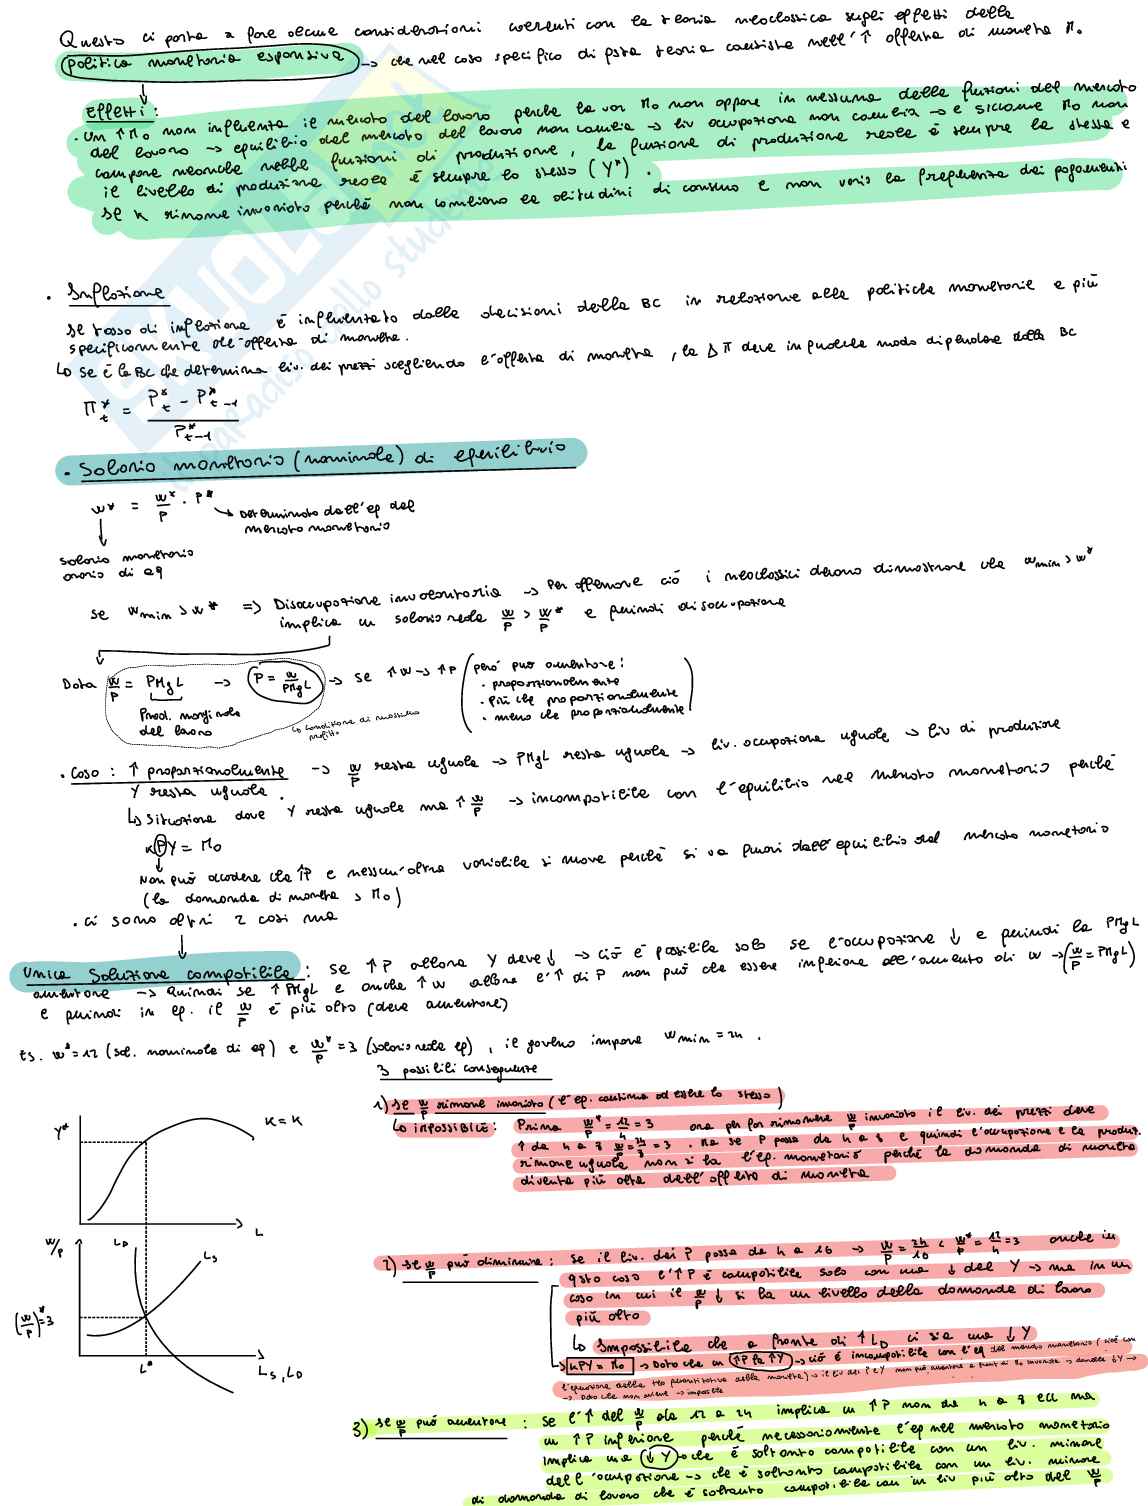 Questo ci porta a fare alcune considerazioni coerenti con la teoria neoclassica sugli effetti della
politica monetaria espansiva → che nel caso specifico di qsta teoria consiste nell'↑ offerta di moneta M₀
Effetti:
· Un ↑M₀ non influenza il mercato del lavoro perché la var M₀ non appare in nessuna delle funzioni del mercato
del lavoro → equilibrio del mercato del lavoro non cambia → liv occupazione non cambia → e siccome M₀ non
compare neanche nella funzioni di produzione, la funzione di produzione reale è sempre la stessa e
il livello di produzione reale è sempre lo stesso (Y*).
Se K rimane invariato perché non cambiano le abitudini di consumo e non varia la frequenza dei pagamenti
· Inflazione
Il tasso di inflazione è influenzato dalle decisioni della BC in relazione alla politiche monetarie e più
specificamente all'offerta di moneta.
↳ Se è la BC che determina liv. dei prezzi scegliendo l'offerta di moneta, la Δ π deve in qualche modo dipendere dalla BC
π*t = (P*t - P*t-1) / P*t-1
· Salario monetario (nominale) di equilibrio
w* = w*/P · P* → Determinato dall'eq del
mercato monetario
salario monetario
orario di eq
Se wmin > w* => Disoccupazione involontaria → Per affermare ciò i neoclassici devono dimostrare che wmin > w*
implica un salario reale w/P > w/P* e quindi disoccupazione
Data w/P = PMgL → P = w/PMgL → se ↑w → ↑P (però può aumentare:
· proporzionalmente
· più che proporzionalmente
· meno che proporzionalmente)
Prod. marginale
del lavoro
↳ condizione di massimo
profitto
· Caso: ↑ proporzionalmente → w/P resta uguale → PMgL resta uguale → liv. occupazione uguale → liv di produzione
Y resta uguale.
↳ Situazione dove Y resta uguale ma ↑ w/P → incompatibile con l'equilibrio nel mercato monetario perché
KPY = M₀
Non può accadere che ↑P e nessun'altra variabile si muove perché si va fuori dall'equilibrio del mercato monetario
(la domanda di moneta > M₀)
· Ci sono altri 2 casi ma
Unica soluzione compatibile: Se ↑P allora Y deve ↓ → Ciò è possibile solo se l'occupazione ↓ e quindi la PMgL
aumentare → Quindi se ↑PMgL e anche ↑w allora l'↑ di P non può che essere inferiore all'aumento di w → (w/P = PMgL)
e quindi in eq. il w/P è più alto (deve aumentare)
Es. w*=12 (sal. nominale di eq) e w*/P=3 (salario reale eq), il governo impone wmin=24.
3 possibili conseguenze
1) Se w/P rimane invariato (l'eq. continua ad essere lo stesso)
↳ IMPOSSIBILE: Prima w*/P = 12/4 = 3 ora per far rimanere w/P invariato il liv. dei prezzi deve
↑ da 4 a 8 w/P = 24/8 = 3. Ma se P passa da 4 a 8 e quindi l'occupazione e la produz.
rimane uguale non si ha l'eq. monetario perché la domanda di moneta
diventa più alta dell'offerta di moneta
K=K
Y*
L
w/P
LD
LS
(w/P)*=3
L*
LS, LD
2) Se w/P può diminuire: Se il liv. dei P passa da 4 a 16 → w/P = 24/16 < w*/P = 12/4 = 3 anche in
qsto caso l'↑P è compatibile solo con una ↓ del Y → ma in un
caso in cui il w/P ↓ si ha un livello della domanda di lavoro
più alto
↳ Impossibile che a fronte di ↑LD ci sia una ↓Y
→ KPY = M₀ → Dato che un ↑P fa ↑Y → ciò è incompatibile con l'eq del mercato monetario (cioè con
3) Se w/P può aumentare: Se l'↑ del w/P da 12 a 24 implica un ↑P non da 4 a 8 ecc ma
un ↑P inferiore perché necessariamente l'eq nel mercato monetario
implica una ↓Y → che è soltanto compatibile con un liv. minore
dell'occupazione → che è soltanto compatibile con un liv. minore
di domanda di lavoro che è soltanto compatibile con un liv più alto del w/P